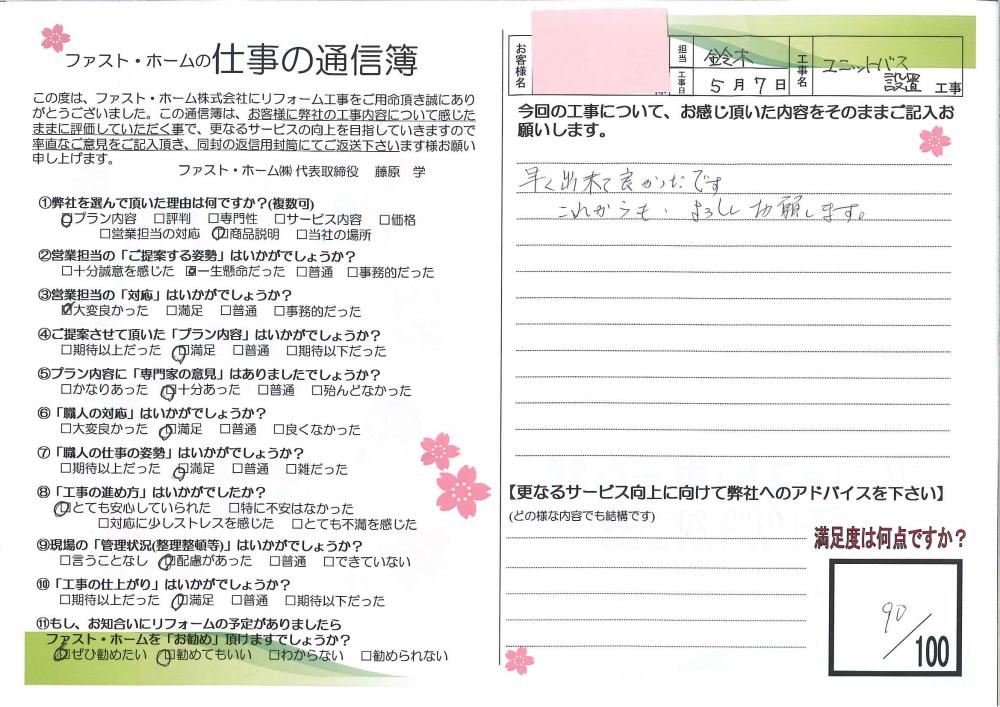 ファスト・ホームの仕事の通信簿
この度は、ファスト・ホーム株式会社にリフォーム工事をご用命頂き誠にあり
がとうございました。この通信簿は、お客様に弊社の工事内容について感じた
ままに評価していただく事で、更なるサービスの向上を目指していきますので
率直なご意見をご記入頂き、同封の返信用封筒にてご返送下さいます様お願い
申し上げます。
ファスト・ホーム㈱ 代表取締役 藤原 学
①弊社を選んで頂いた理由は何ですか?(複数可)
□プラン内容 □評判 □専門性 □サービス内容 □価格
□営業担当の対応 □商品説明 □当社の場所
②営業担当の「ご提案する姿勢」はいかがでしょうか?
□十分誠意を感じた □一生懸命だった □普通 □事務的だった
③営業担当の「対応」はいかがでしょうか?
☑大変良かった □満足 □普通 □事務的だった
④ご提案させて頂いた「プラン内容」はいかがでしょうか?
□期待以上だった □満足 □普通 □期待以下だった
⑤プラン内容に「専門家の意見」はありましたでしょうか?
□かなりあった □十分あった □普通 □殆んどなかった
⑥「職人の対応」はいかがでしょうか?
□大変良かった □満足 □普通 □良くなかった
⑦「職人の仕事の姿勢」はいかがでしょうか?
□期待以上だった □満足 □普通 □雑だった
⑧「工事の進め方」はいかがでしたか?
□とても安心していられた □特に不安はなかった
□対応に少しストレスを感じた □とても不満を感じた
⑨現場の「管理状況(整理整頓等)」はいかがでしょうか?
□言うことなし □配慮があった □普通 □できていない
⑩「工事の仕上がり」はいかがでしょうか?
□期待以上だった □満足 □普通 □期待以下だった
⑪もし、お知合いにリフォームの予定がありましたら
ファスト・ホームを「お勧め」頂けますでしょうか?
□ぜひ勧めたい □勧めてもいい □わからない □勧められない
お客様名 様 担当 鈴木 工事日 5月7日 工事名 ユニットバス設置 工事
今回の工事について、お感じ頂いた内容をそのままご記入お
願いします。
早く出来て良かったです
これからも、よろしくお願します。
【更なるサービス向上に向けて弊社へのアドバイスを下さい】
(どの様な内容でも結構です)
満足度は何点ですか?
90/100